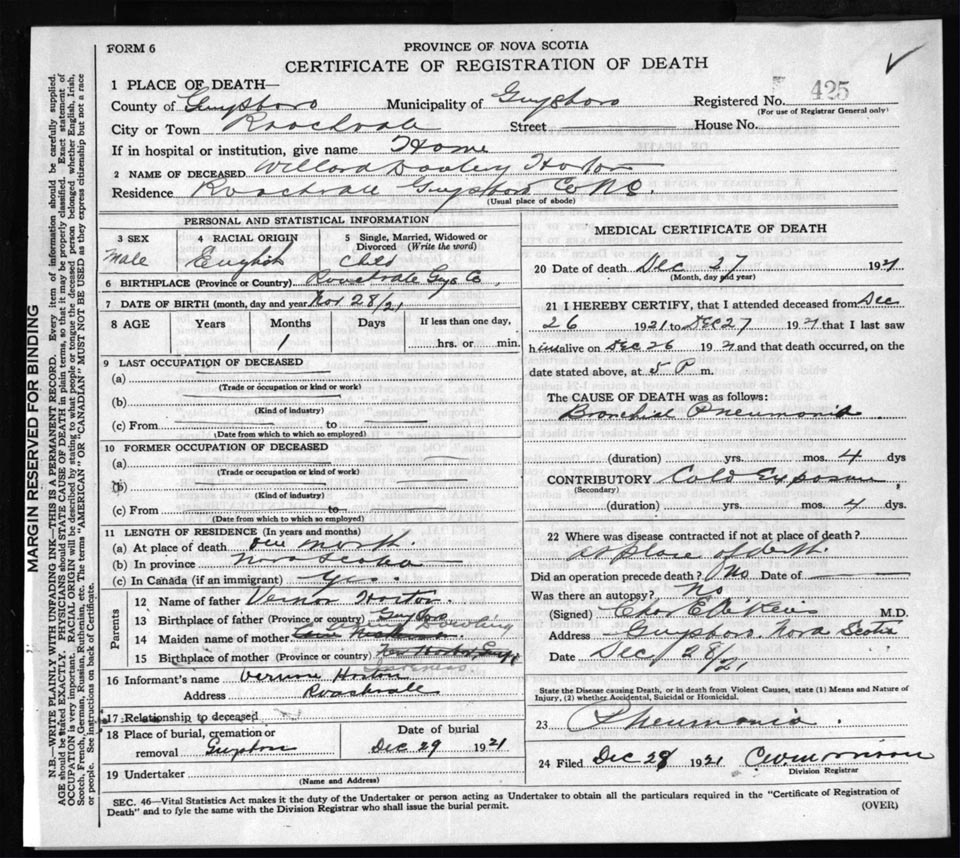 FORM 6
PROVINCE OF NOVA SCOTIA
CERTIFICATE OF REGISTRATION OF DEATH
1 PLACE OF DEATH—
County of Guysboro Municipality of Guysboro Registered No. 425
(For use of Registrar General only)
City or Town Roachvale Street — House No.
If in hospital or institution, give name Home
2 NAME OF DECEASED Willard Horton
Residence Roachvale Guysboro Co N.S.
(Usual place of abode)
PERSONAL AND STATISTICAL INFORMATION
3 SEX
Male
4 RACIAL ORIGIN
English
5 Single, Married, Widowed or Divorced (Write the word)
Child
6 BIRTHPLACE (Province or Country) Roachvale Guys Co,
7 DATE OF BIRTH (month, day and year) Nov 28/21
8 AGE Years Months Days If less than one day,
1 hrs. or min.
9 LAST OCCUPATION OF DECEASED
(a)
(Trade or occupation or kind or work)
(b)
(Kind of industry)
(c) From to
(Date from which to which so employed)
10 FORMER OCCUPATION OF DECEASED
(a)
(Trade or occupation or kind of work)
(b)
(Kind of industry)
(c) From to
(Date from which to which so employed)
11 LENGTH OF RESIDENCE (In years and months)
(a) At place of death one month
(b) In province Nova Scotia
(c) In Canada (if an immigrant) Yes.
Parents
12 Name of father Vernon Horton
13 Birthplace of father (Province or country) Guysboro
14 Maiden name of mother
15 Birthplace of mother (Province or country)
16 Informant's name Vernon Horton
Address Roachvale
17 Relationship to deceased
18 Place of burial, cremation or removal Guysboro
Date of burial
Dec 29 1921
19 Undertaker
(Name and Address)
MEDICAL CERTIFICATE OF DEATH
20 Date of death Dec 27 1921
(Month, day and year)
21 I HEREBY CERTIFY, that I attended deceased from Dec
26 1921 to Dec 27 1921 that I last saw
him alive on Dec 26 1921 and that death occurred, on the
date stated above, at 5 P. m.
The CAUSE OF DEATH was as follows:
Bronchial Pneumonia
(duration) yrs. mos. 4 dys
CONTRIBUTORY Cold Exposure,
(Secondary)
(duration) yrs. mos. 4 dys.
22 Where was disease contracted if not at place of death?
at place of death.
Did an operation precede death? No Date of —
Was there an autopsy? No
(Signed) M.D.
Address Guysboro Nova Scotia
Date Dec 28/21
State the Disease causing Death, or in death from Violent Causes, state (1) Means and Nature of Injury, (2) whether Accidental, Suicidal or Homicidal.
23 Pneumonia.
24 Filed Dec 28 1921
Division Registrar
SEC. 46—Vital Statistics Act makes it the duty of the Undertaker or person acting as Undertaker to obtain all the particulars required in the "Certificate of Registration of
Death" and to fyle the same with the Division Registrar who shall issue the burial permit.
(OVER)
MARGIN RESERVED FOR BINDING
N.B.—WRITE PLAINLY WITH UNFADING INK—THIS IS A PERMANENT RECORD. Every item of information should be carefully supplied.
AGE should be stated EXACTLY. PHYSICIANS should STATE CAUSE OF DEATH in plain terms, so that it may be properly classified. Exact statement of
OCCUPATION is very important. RACIAL ORIGIN will be described by stating to what people or tongue the deceased person belonged whether English, Irish,
Scotch, French, German, Russian, Ruthenian, etc. The terms "AMERICAN" OR "CANADIAN" MUST NOT BE USED as they express citizenship but not a race
or people. See instructions on back of Certificate.